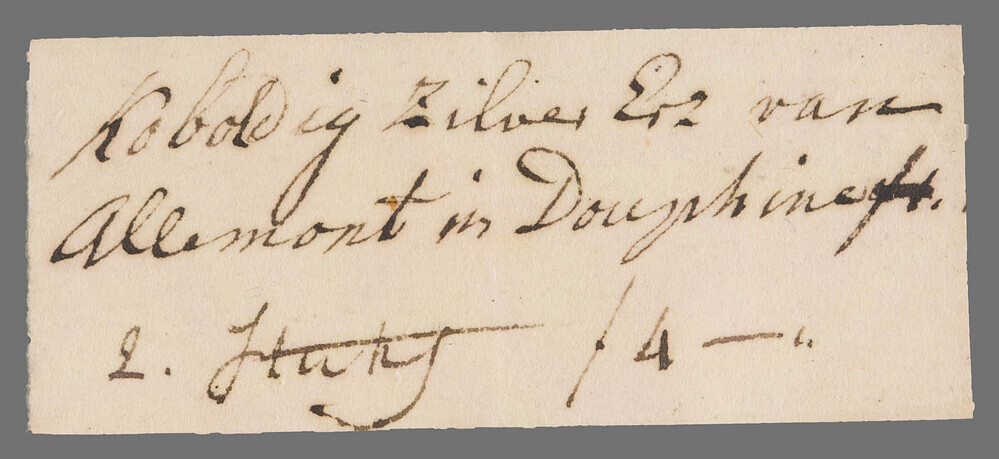 Koboldig Zilver Erz van
Allemont in Douphine
2. Stuks f 4 — "